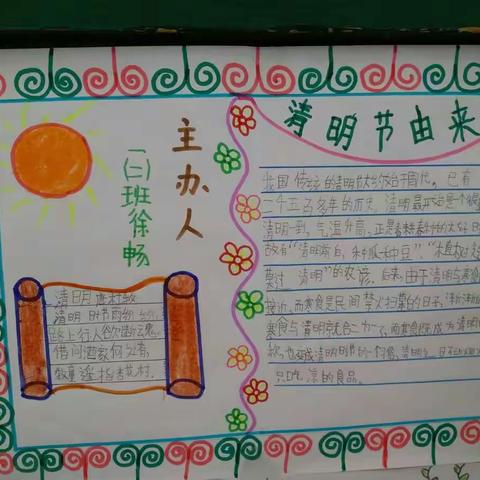 主办人
一(二)班徐畅
清明 唐杜牧
清明时节雨纷纷,
路上行人欲断魂。
借问酒家何处有,
牧童遥指杏花村。
清明节由来
我国传统的清明节大约始于周代,已有
二千五百多年的历史,清明最开始是个很
清明一到,气温升高,正是春耕春种的大好
故有“清明前后,种瓜种豆”“植树
莫过 清明”的农谚。后来,由于清明与寒食
接近,而寒食是民间禁火扫墓的日子,渐渐
寒食与清明就合二为一了,而寒食既成为清明的
称,也变成清明时节的一个习俗,清明之日不
只吃凉的食品。